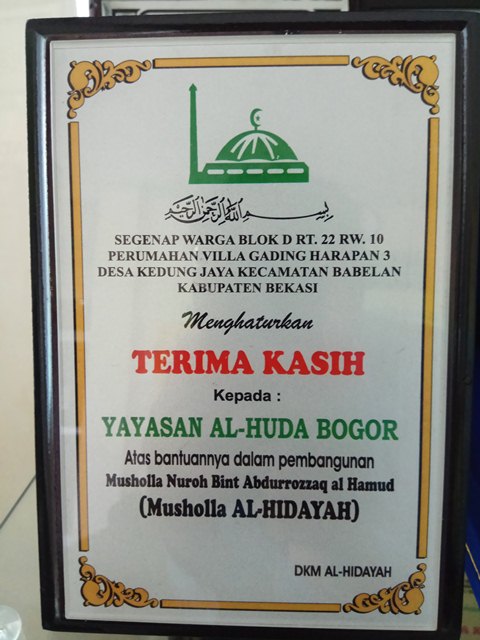 بِسْمِ اللّٰهِ الرَّحْمٰنِ الرَّحِيْمِ
SEGENAP WARGA BLOK D RT. 22 RW. 10
PERUMAHAN VILLA GADING HARAPAN 3
DESA KEDUNG JAYA KECAMATAN BABELAN
KABUPATEN BEKASI
Menghaturkan
TERIMA KASIH
Kepada :
YAYASAN AL-HUDA BOGOR
Atas bantuannya dalam pembangunan
Musholla Nuroh Bint Abdurrozzaq al Hamud
(Musholla AL-HIDAYAH)
DKM AL-HIDAYAH